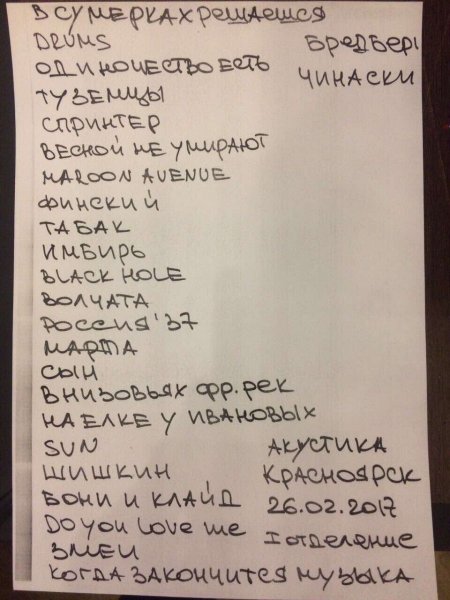 В СУМЕРКАХ РЕШАЕШСЯ
DRUMS
ОДИНОЧЕСТВО ЕСТЬ
ТУЗЕМЦЫ
СПРИНТЕР
ВЕСНОЙ НЕ УМИРАЮТ
MAROON AVENUE
ФИНСКИЙ
ТАБАК
ИМБИРЬ
BLACK HOLE
ВОЛЧАТА
РОССИЯ '37
МАРТА
СЫН
В НИЗОВЬЯХ ФР. РЕК
НА ЕЛКЕ У ИВАНОВЫХ
SUN
ШИШКИН
БОНИ И КЛАЙД
DO YOU LOVE ME
ЗМЕИ
КОГДА ЗАКОНЧИТСЯ МУЗЫКА
БРЕДБЕРІ
ЧИНАСКИ
АКУСТИКА
КРАСНОЯРСК
26.02.2017
I ОТДЕЛЕНИЕ